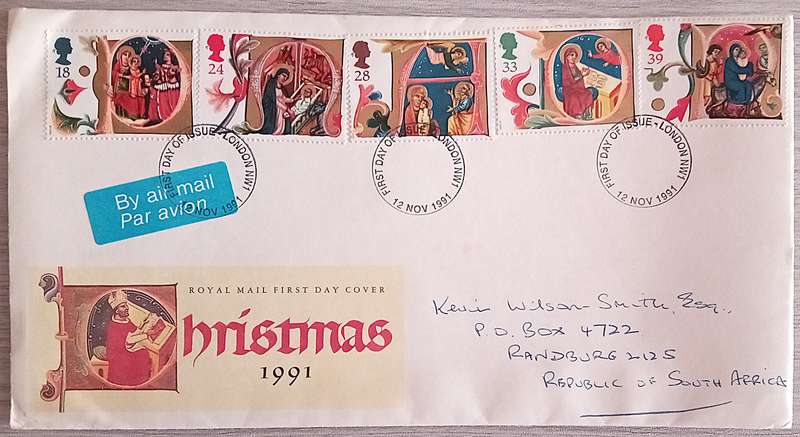 18
24
28
33
39
FIRST DAY OF ISSUE - LONDON NW1
12 NOV 1991
FIRST DAY OF ISSUE - LONDON NW1
12 NOV 1991
FIRST DAY OF ISSUE - LONDON NW1
12 NOV 1991
By air mail
Par avion
ROYAL MAIL FIRST DAY COVER
Christmas
1991
Kevin Wilson-Smith, Esq.,
P.O. BOX 4722
RANDBURG 2125
REPUBLIC OF SOUTH AFRICA